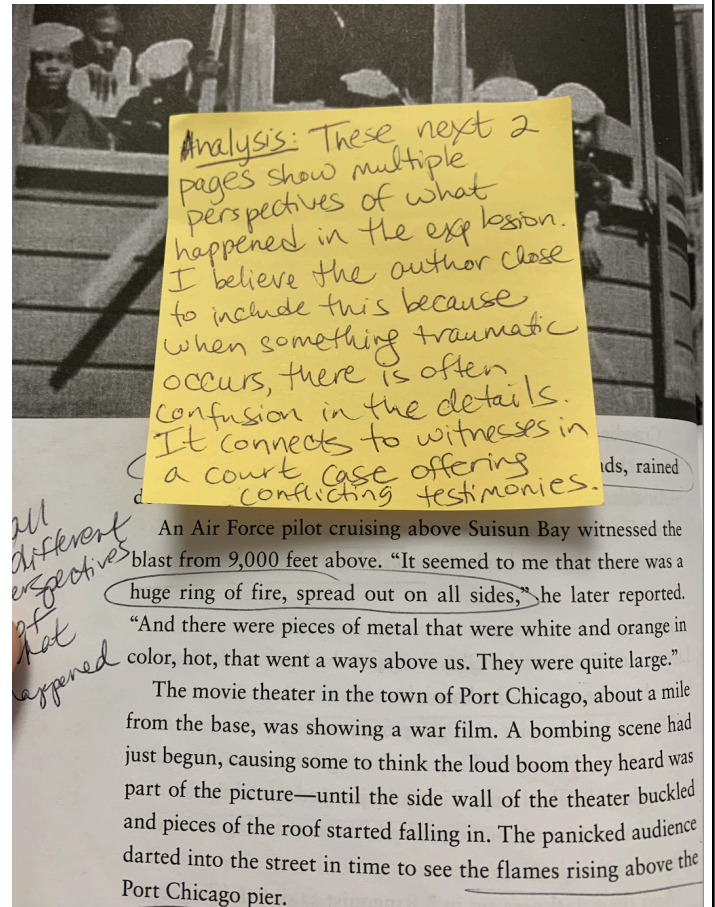 Analysis: These next 2
pages show multiple
perspectives of what
happened in the explosion.
I believe the author chose
to include this because
when something traumatic
occurs, there is often
confusion in the details.
It connects to witnesses in
a court case offering
conflicting testimonies.
rained
all
different
perspectives
of
what
happened
An Air Force pilot cruising above Suisun Bay witnessed the
blast from 9,000 feet above. “It seemed to me that there was a
huge ring of fire, spread out on all sides,” he later reported.
“And there were pieces of metal that were white and orange in
color, hot, that went a ways above us. They were quite large.”
The movie theater in the town of Port Chicago, about a mile
from the base, was showing a war film. A bombing scene had
just begun, causing some to think the loud boom they heard was
part of the picture—until the side wall of the theater buckled
and pieces of the roof started falling in. The panicked audience
darted into the street in time to see the flames rising above the
Port Chicago pier.